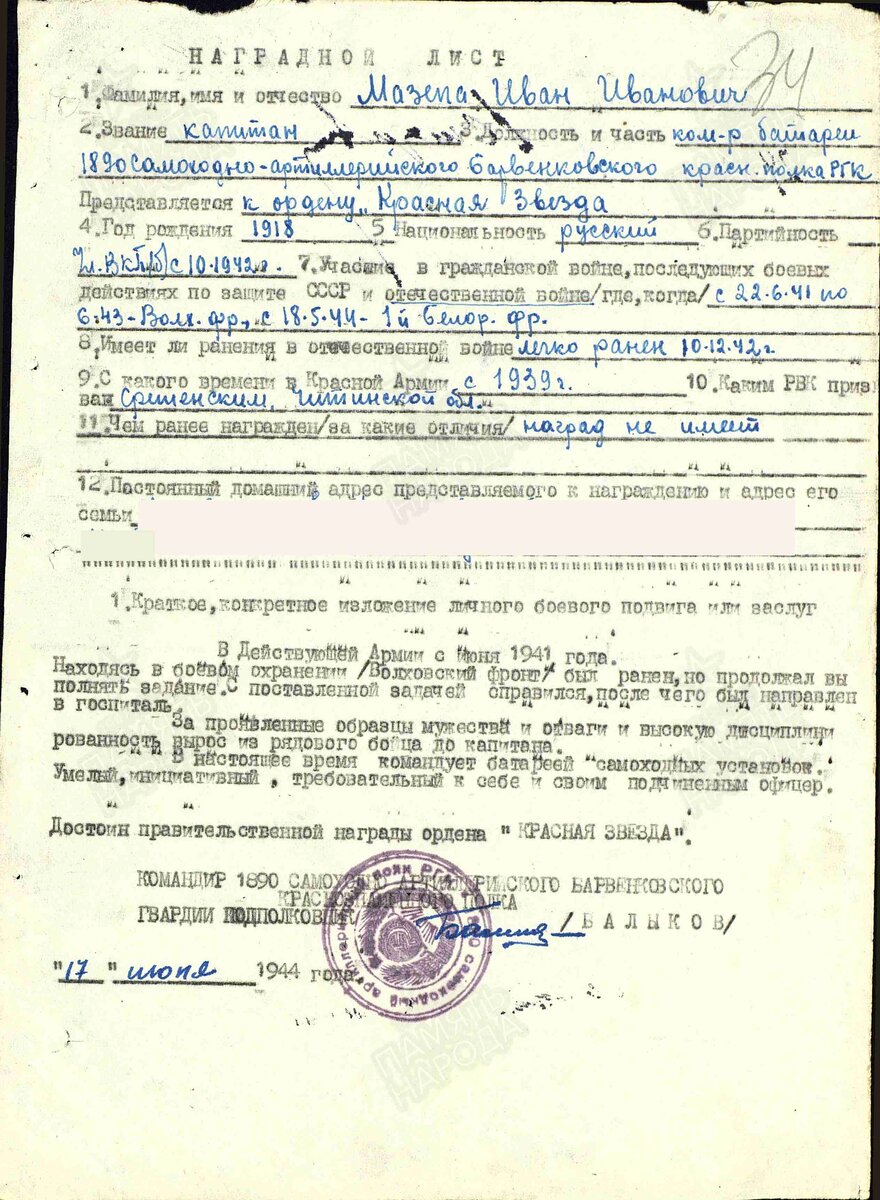 34
НАГРАДНОЙ ЛИСТ
1.Фамилия,имя и отчество Мазепа Иван Иванович
2.Звание капитан 3.Должность и часть ком-р батареи
1890 Самоходно-артиллерийского Барвенковского красн. полка РГК
Представляется к ордену „Красная Звезда
4.Год рождения 1918 5 Национальность русский 6.Партийность
Чл. ВКП(б) с 10.1942г. 7.Участие в гражданской войне,последующих боевых
действиях по защите СССР и отечественной войне/где,когда/ с 22.6.41 по
6.43-Волх. фр., с 18.5.44-1й Белор. фр.
8.Имеет ли ранения в отечественной войне легко ранен 10.12.42г.
9.С какого времени в Красной Армии с 1939г. 10.Каким РВК приз
ван Сретенским, Читинской обл.
11.Чем ранее награжден/за какие отличия/ наград не имеет
12.Постоянный домашний адрес представляемого к награждению и адрес его
семьи
1.Краткое,конкретное изложение личного боевого подвига или заслуг
В Действующей Армии с Июня 1941 года.
Находясь в боевом охранении /Волховский фронт/ был ранен,но продолжал вы
полнять задание.С поставленной задачей справился,после чего был направлен
в госпиталь.
За проявленные образцы мужества и отваги и высокую дисциплини
рованность вырос из рядового бойца до капитана.
В настоящее время командует батареей "самоходных установок.
Умелый,инициативный, требовательный к себе и своим подчиненным офицер.
Достоин правительственной награды ордена " КРАСНАЯ ЗВЕЗДА".
КОМАНДИР 1890 САМОХОДНО АРТИЛЛЕРИЙСКОГО БАРВЕНКОВСКОГО
КРАСНОЗНАМЕННОГО ПОЛКА
ГВАРДИИ ПОДПОЛКОВНИК /БАЛЫКОВ/
"17" июня 1944 года
1890 самоходный артиллерийский полк РГК
ПАМЯТЬ
НАРОДА